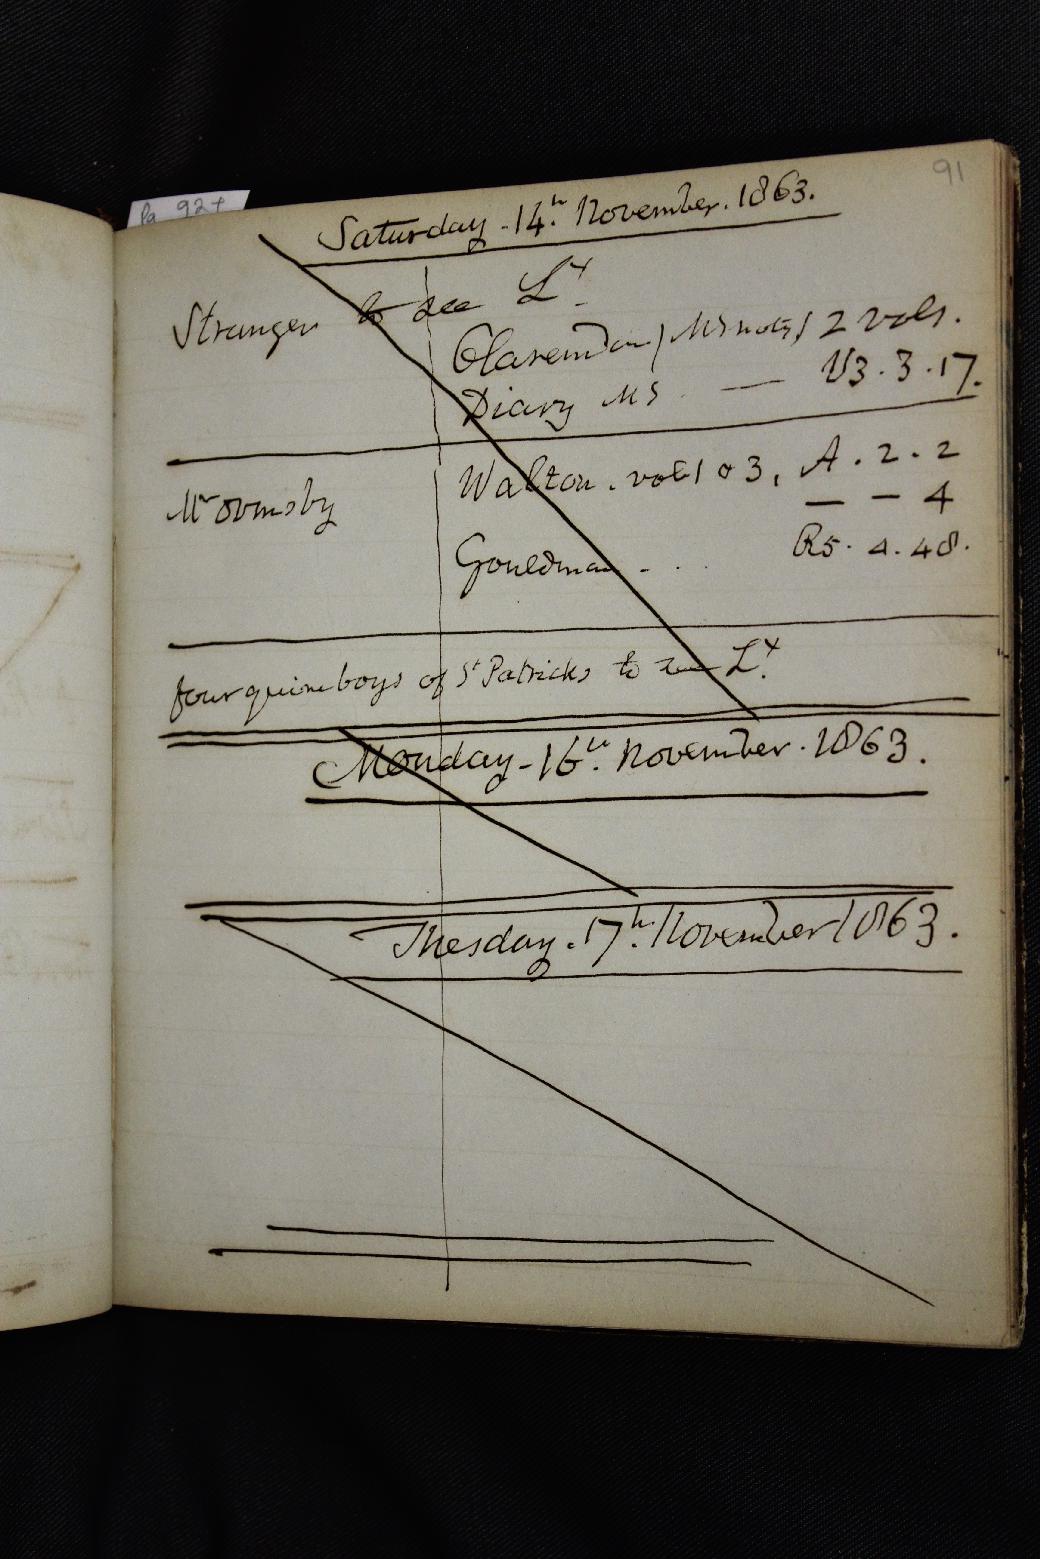 91
Pg 92+
Saturday - 14th. November. 1863.
Stranger to see Ly.
Clarendon / MS notes / 2 vols.
Diary MS — V3.3.17.
Mr Ormsby
Walton. vol 1 & 3, A.2.2
— — 4
Gouldman - . . R5.4.48.
four quire boys of St Patricks to see Ly.
Monday - 16th. November. 1863.
Tuesday. 17th. November 1863.